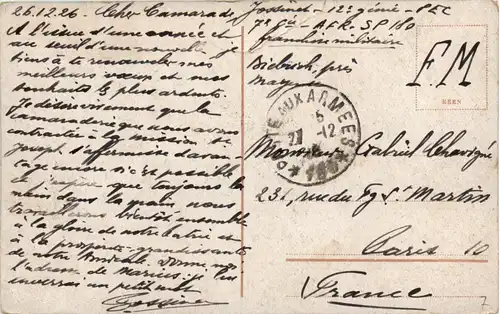 26.12.26 - Cher Camarade,
A l'issue d'une année et
au seuil d'une nouvelle je
tiens à te renouveler mes
meilleurs vœux et mes
souhaits le plus ardents.
Je désire vivement que la
camaraderie que nous avons
contractée à la mission St
Joseph, s'affermisse davan
tage encore si c'est possible
et j'espère que toujours la
main dans la main nous
travaillerons bientôt ensemble
à la gloire de notre Patrie et
à la prospérité grandissante
de notre Amicale. Donne moi
l'adresse de je lui
un petit mot
Jossinet - 12e génie - PEC
7e Cie - A.F.R. - S.P. 180
franchise militaire
Biebrich, près
F.M
BERN
POSTE AUX ARMEES
5
27 -12
26
* 180 *
Monsieur Gabriel Chavigné
231, rue du Fg St Martin
Paris 10
France